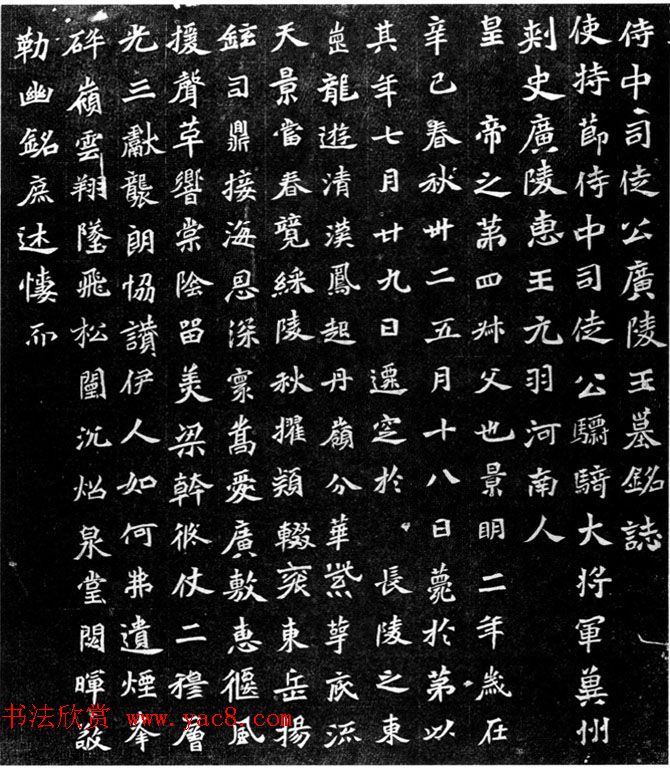 侍中司徒公廣陵王墓銘誌
使持節侍中司徒公驃騎大将軍冀州
刾史廣陵惠王元羽河南人
皇帝之第四叔父也景明二年歲在
辛巳春秋卌二五月十八日薨於第以
其年七月廿九日遷窆於長陵之東
崗龍遊清漢鳳起丹嶺分華紫萼底流
天景當春競綵陵秋擢穎輟袞東岳揚
鉉司鼎接海恩深寰嵩愛廣敷惠偃風
援聲革響棠陰留美梁幹攸仗二穆層
光三獻襲朗協讚伊人如何弗遺煙峯
碎嶺雲翔墜飛松闈沉炤泉堂閟暉敬
勒幽銘庶述悽而
书法欣赏 www.yac8.com